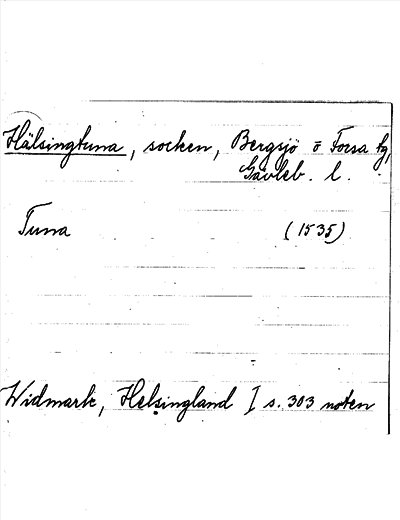 Hälsingtuna, socken, Bergsjö o Forsa tg,
Gävleb. l.
Tuna (1535)
Widmark, Helsingland I s. 303 noten